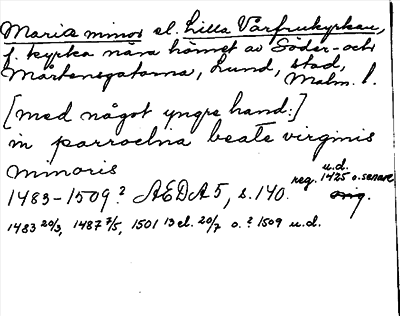 Maria minor el. Lilla Vårfrukyrkan,
f. kyrka nära hörnet av Söder- och
Mårtensgatorna, Lund, stad,
Malm. l.
[med något yngre hand:]
in parroclna beate virginis
minoris
u.d.
1483-1509? AEDA 5, s. 140. reg. 1425 o. senare
orig.
1483 20/3, 1487 7/5, 1501 13 el. 20/7 o. ? 1509 u.d.